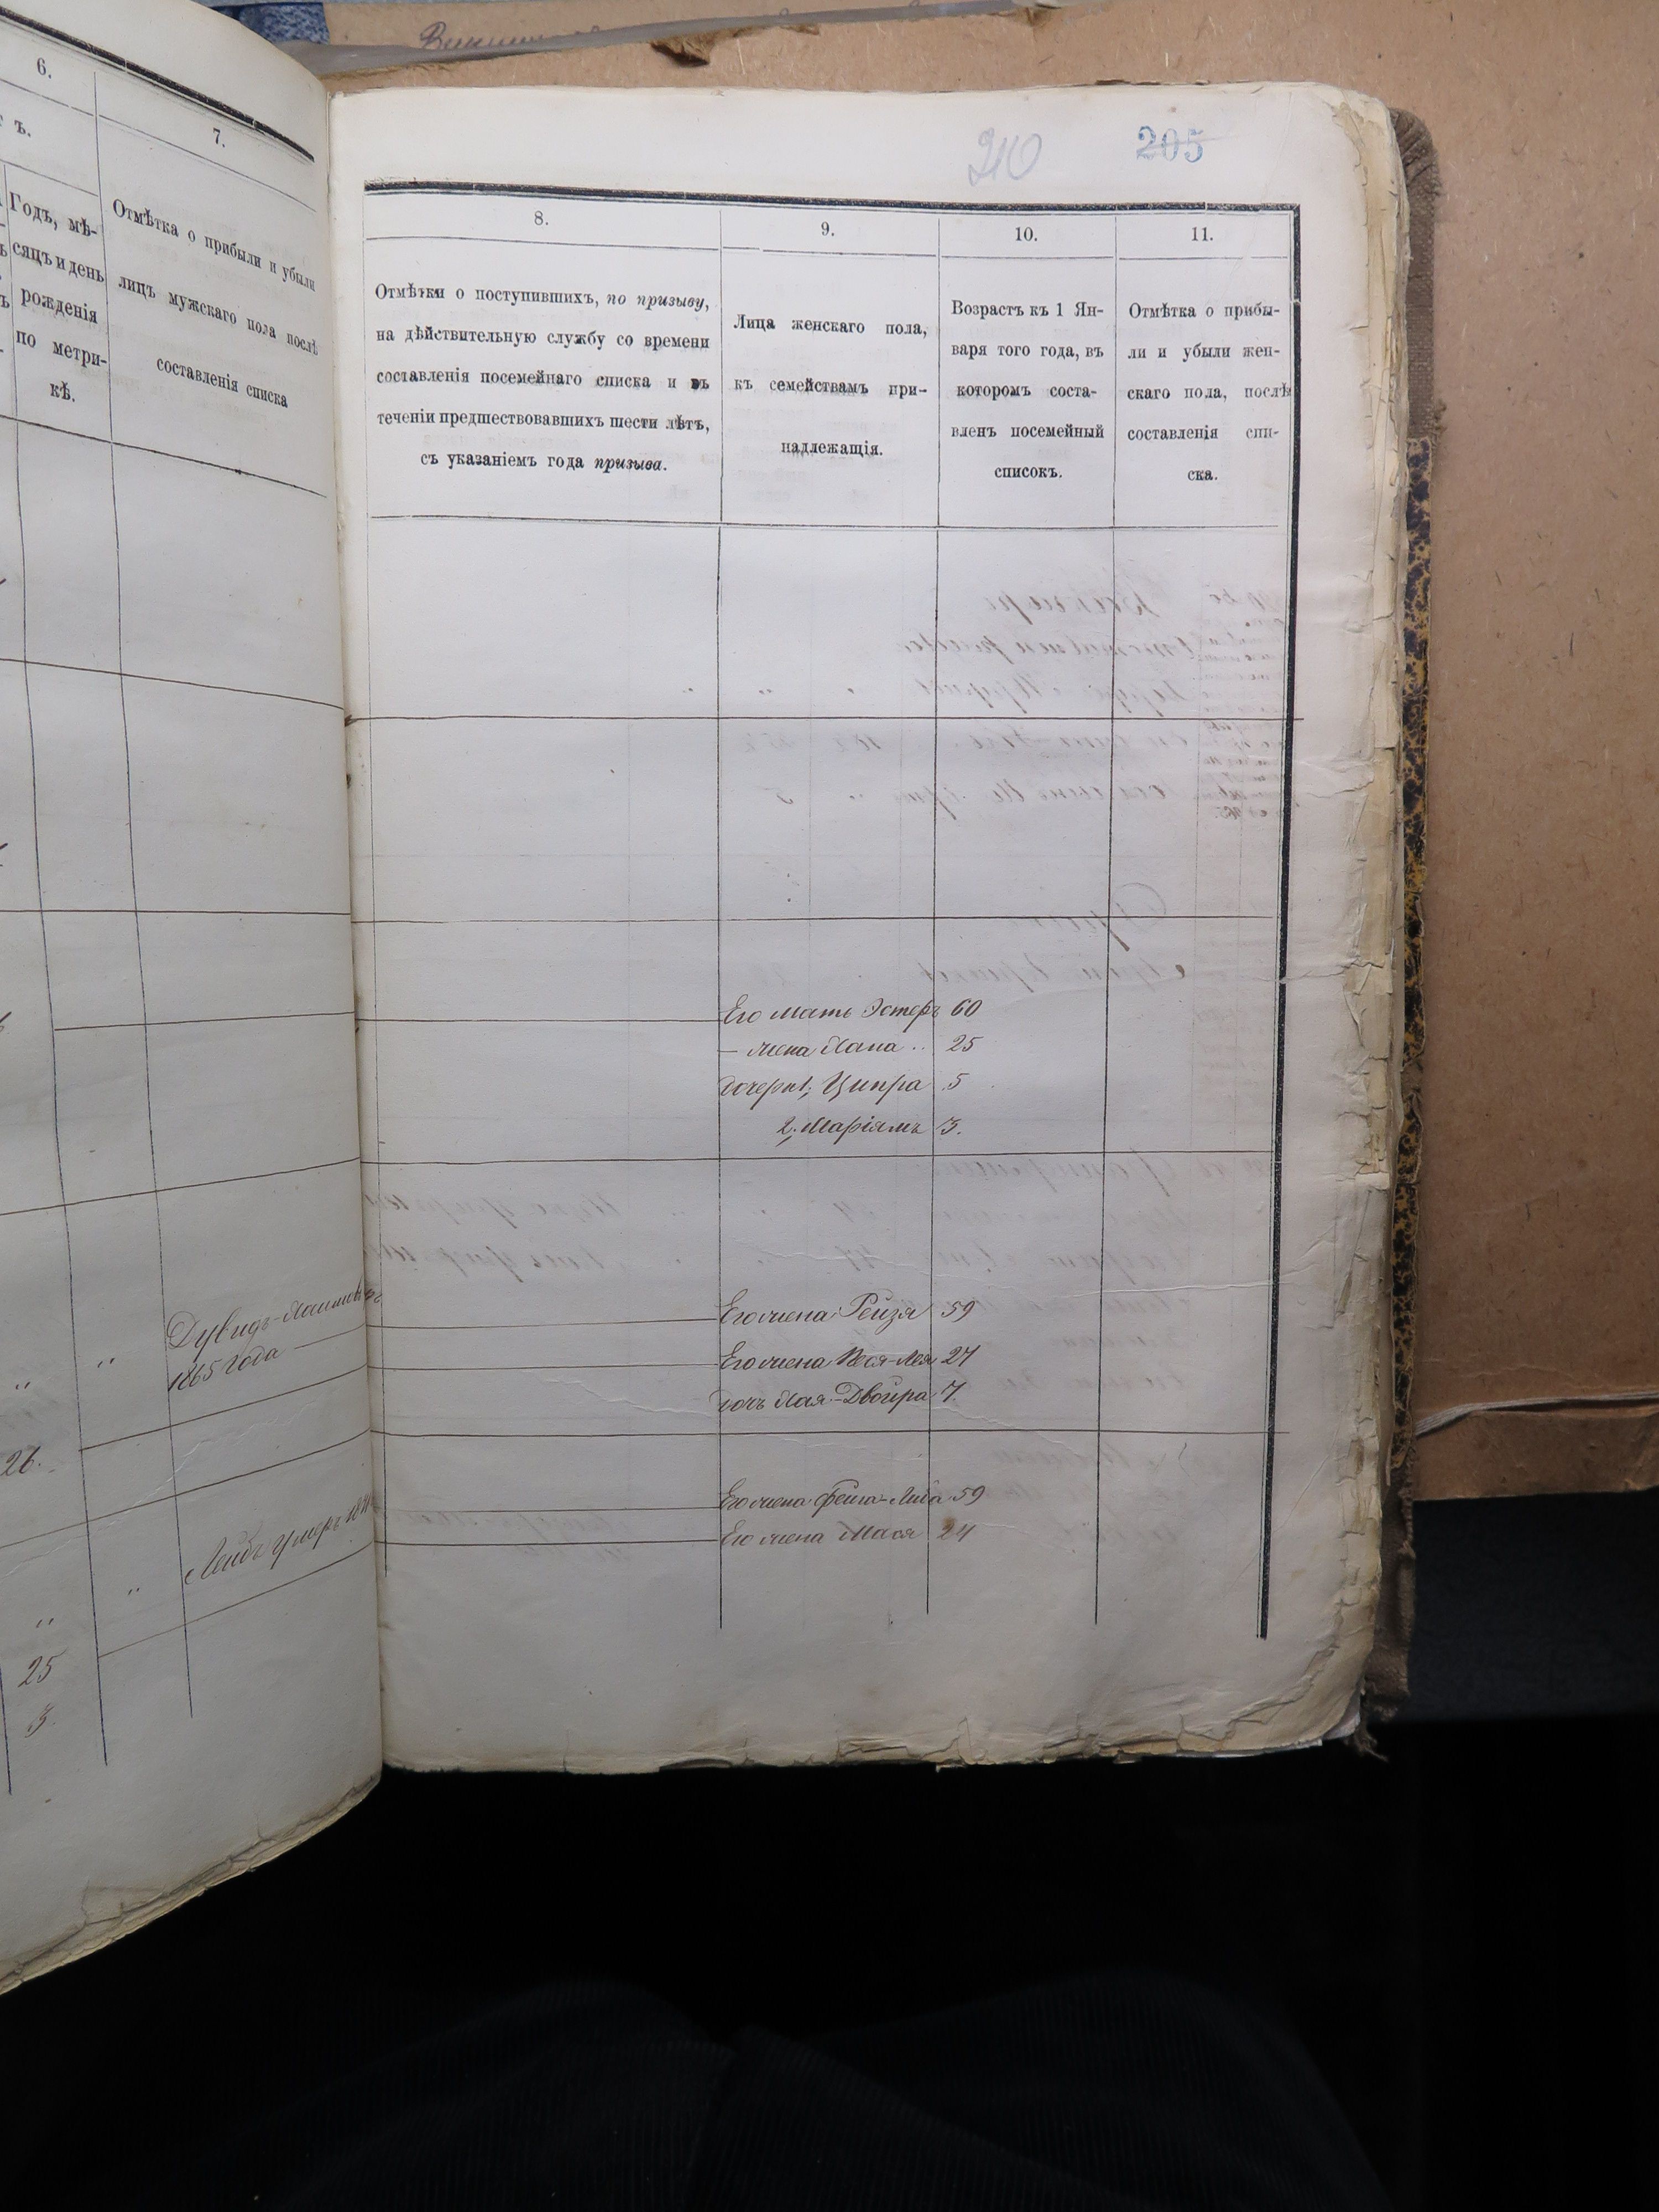 6.
ъ.
7.
Годъ, мѣ-
сяцъ и день
рожденія
по метри-
кѣ.
Отмѣтка о прибыли и убыли
лицъ мужскаго пола послѣ
составленія списка
Дувидъ
1865 года
26.
Лейбъ умеръ
25
3
210
205
8.
9.
10.
11.
Отмѣтки о поступившихъ, по призыву,
на дѣйствительную службу со времени
составленія посемейнаго списка и въ
теченіи предшествовавшихъ шести лѣтъ,
съ указаніемъ года призыва.
Лица женскаго пола,
къ семействамъ при-
надлежащія.
Возрастъ къ 1 Ян-
варя того года, въ
которомъ соста-
вленъ посемейный
списокъ.
Отмѣтка о прибы-
ли и убыли жен-
скаго пола, послѣ
составленія спи-
ска.
Его мать Эстеръ 60
— жена Хана .. 25
дочери 1, Ципра 5
2, Маріямъ 3.
Его жена Рейзя 59
Его жена Песя-Лея 27
дочь Хая-Двойра 7
Его жена Фейга 59
Его жена Мася 24